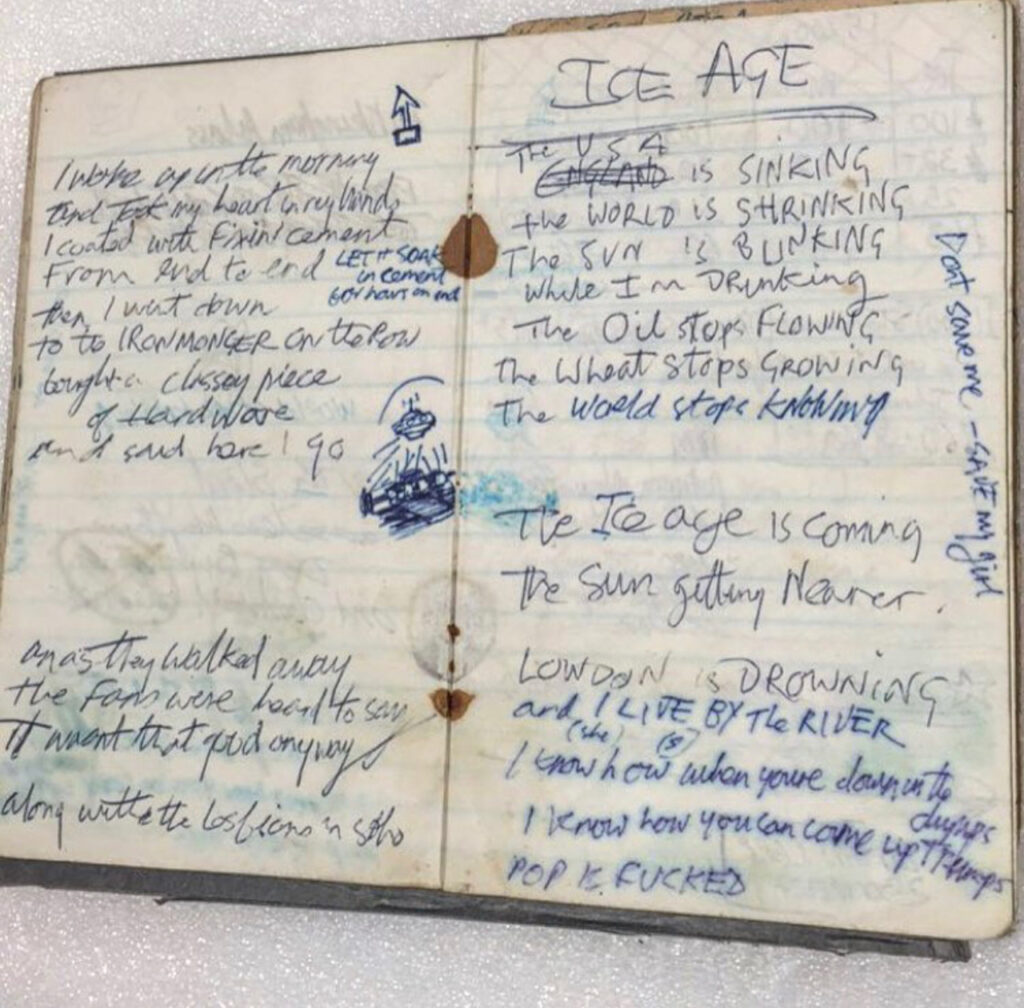 I woke up in the morning
and Took my heart in my hands
I coated with Fixin' cement
From end to end
LET IT SOAK
in cement
60r hours on end
then I went down
to to IRONMONGER on the Row
bought a classey piece
of Hardware
and said here I go
an as they walked away
the Fans were heard to say
It wasnt that good anyway
along with the lesbians in soho
ICE AGE
The USA
ENGLAND is SINKING
the WORLD is SHRINKING
The SUN is BLINKING
while I'm DRinking
The Oil stops FLOWING
The Wheat Stops GROWING
The World stops KNOWING
The Ice age is coming
The Sun getting Nearer.
LONDON is DROWNING
and I LIVE BY The RIVER
(she) (s)
I know how when youre down in the
dumps
I know how you can come up Trumps
POP is FUCKED
Dont save me - SAVE my girl